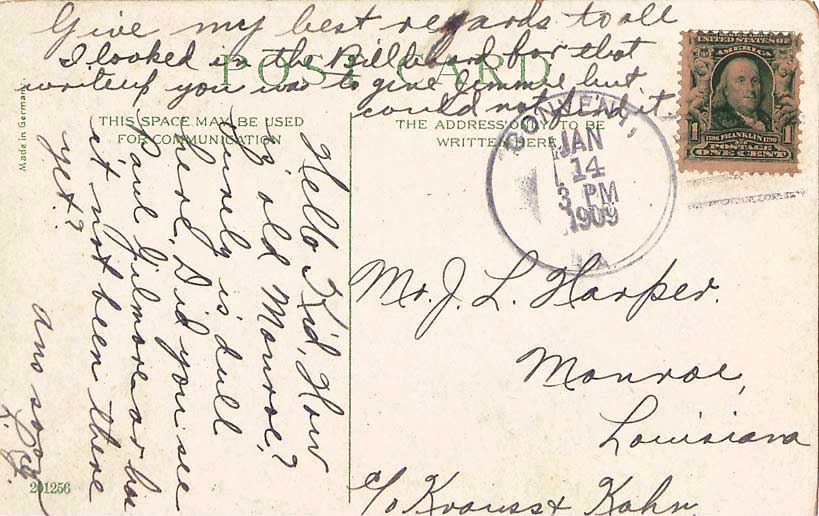 Give my best regards to all
I looked in the Billboard for that
writeup you was to give Jimmie but
could not find it
POST CARD
THIS SPACE MAY BE USED
FOR COMMUNICATION
THE ADDRESS ONLY TO BE
WRITTEN HERE
Made in Germany.
UNITED STATES OF
AMERICA
1 1
FRANKLIN
POSTAGE
ONE CENT
CONVENT,
JAN
14
3 PM
1909
LA.
Hello Kid, How
is old Monroe?
Surely is dull
here. Did you see
Paul Gilmore or has
it not been there
yet?
Ans soon
Mr. J. L. Harper.
Monroe,
Louisiana
c/o Krauss & Kahn
201256